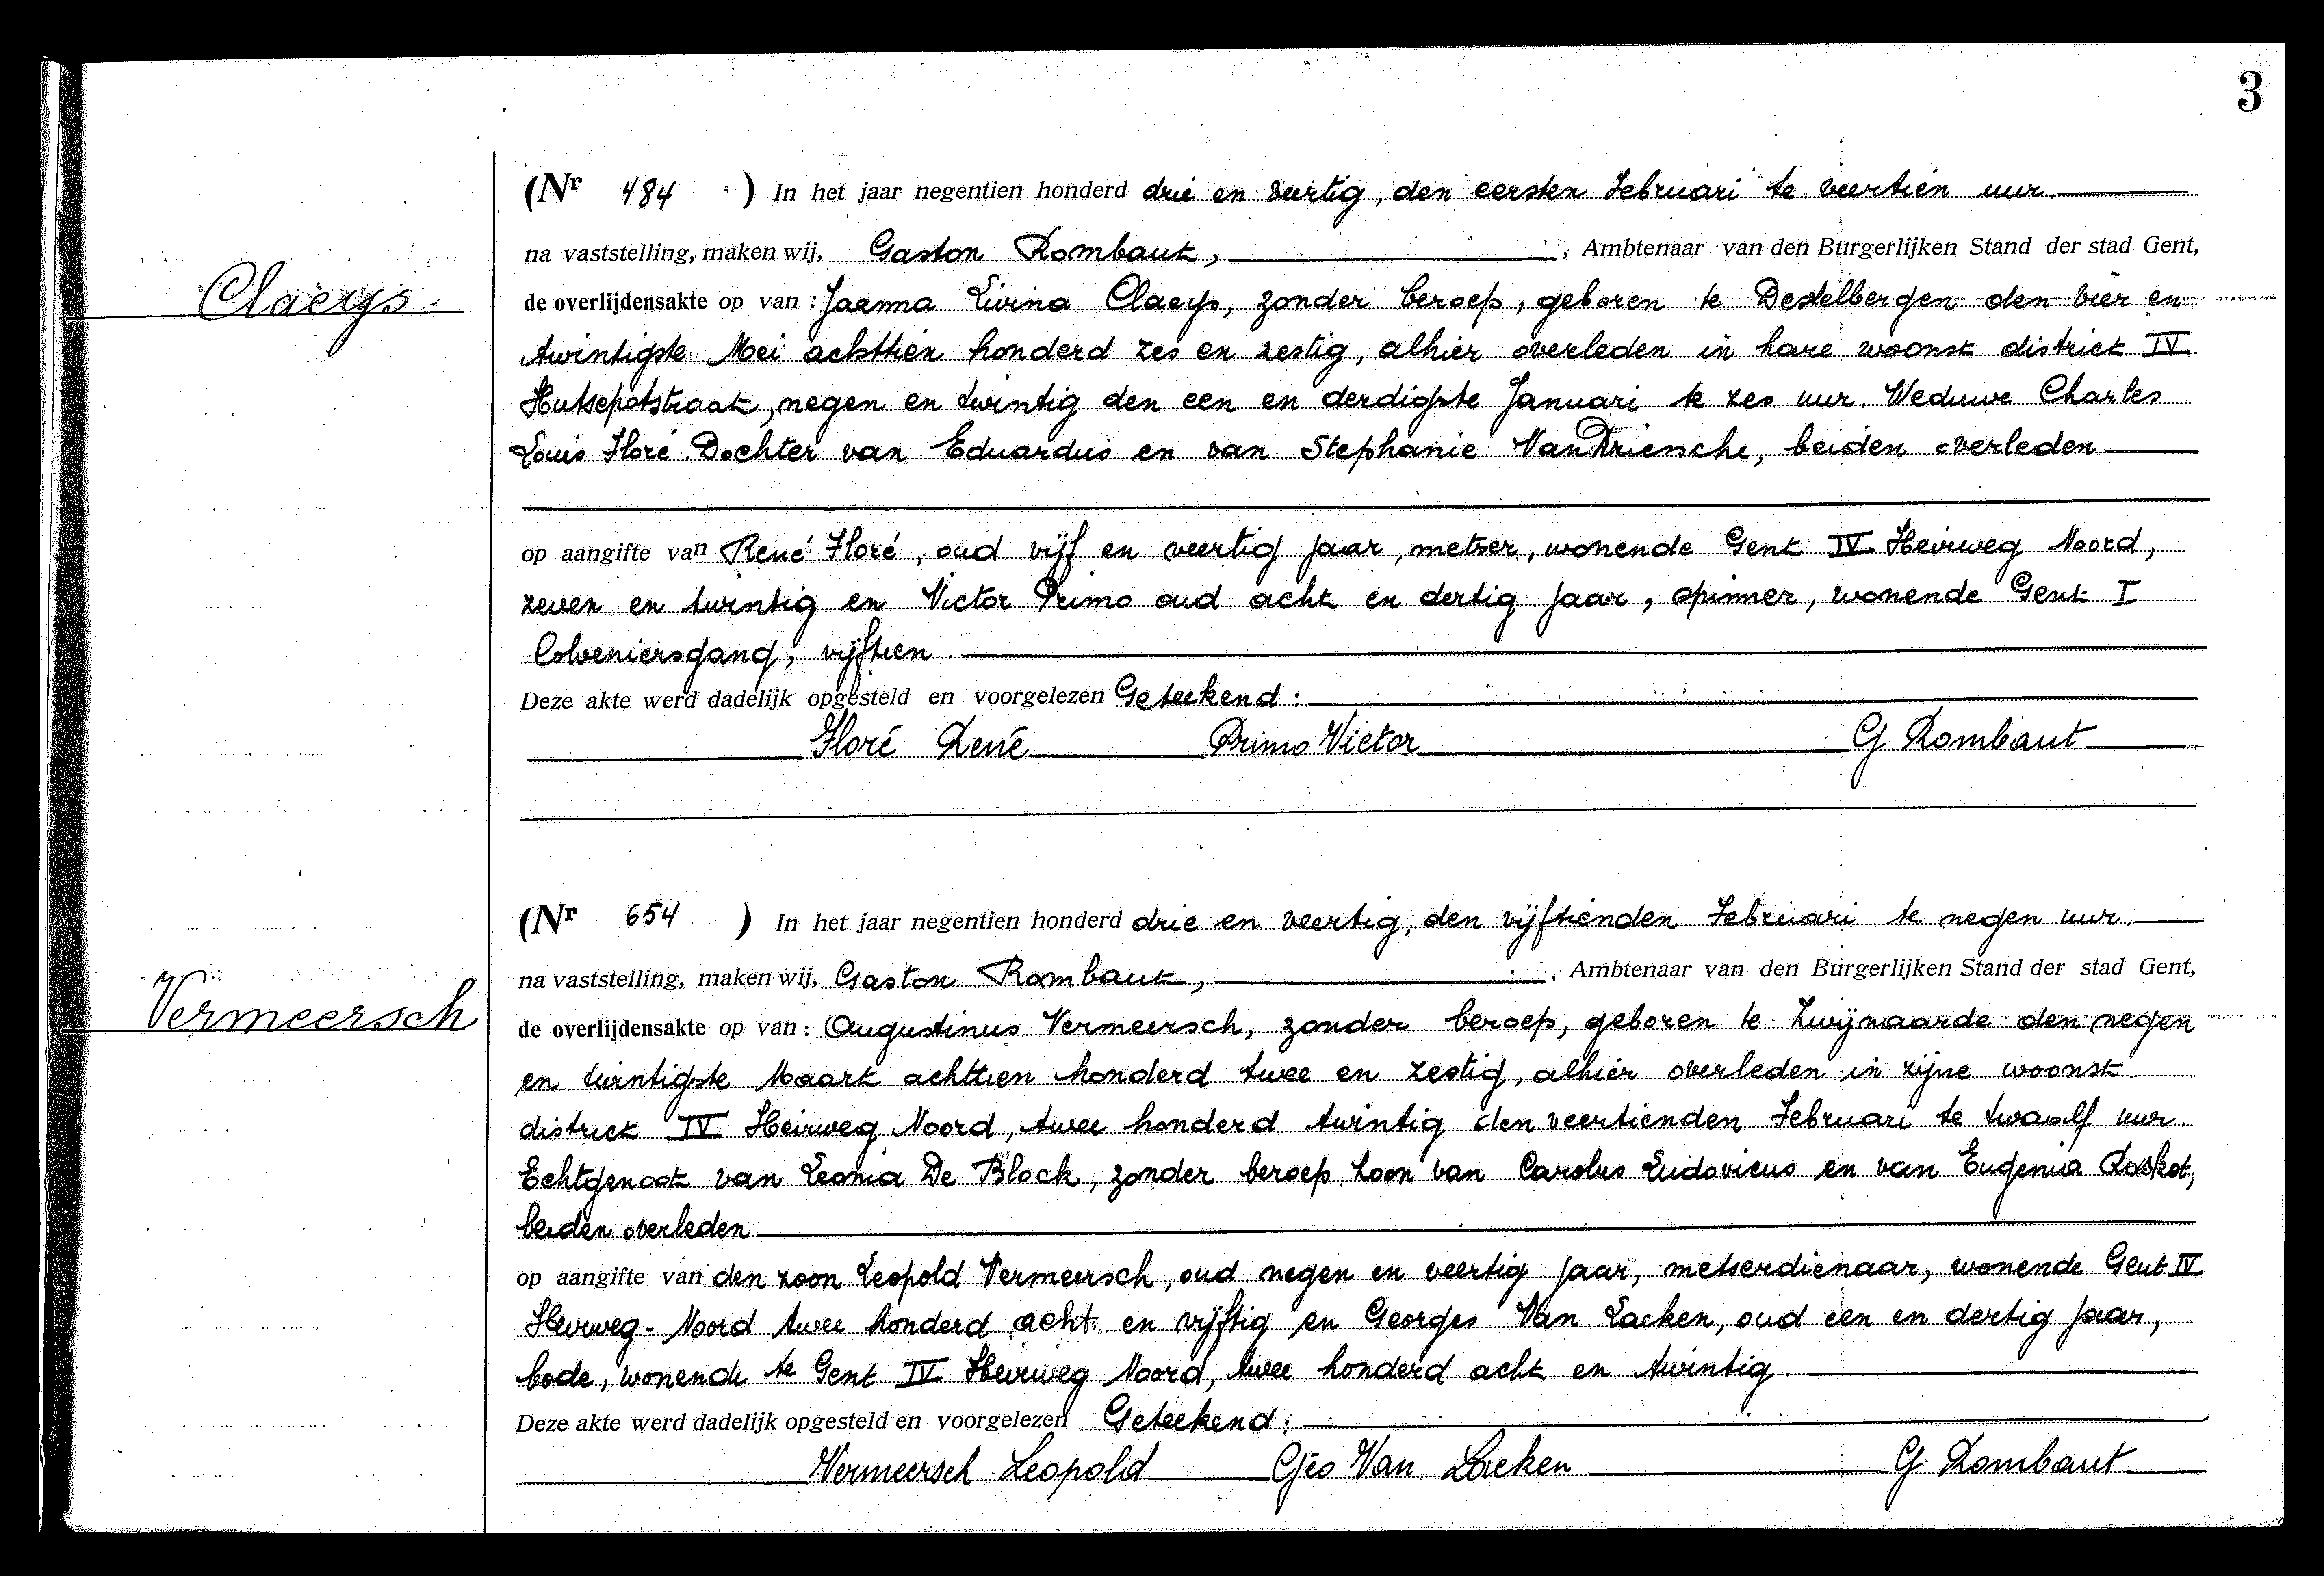 3
(Nr 484 ) In het jaar negentien honderd drie en veertig, den eersten Februari te veertien uur.
na vaststelling, maken wij, Gaston Rombaut, , Ambtenaar van den Burgerlijken Stand der stad Gent,
Claeys.
de overlijdensakte op van : Joanna Livina Claeys, zonder beroep, geboren te Destelbergen den vier en
twintigste Mei achttien honderd zes en zestig, alhier overleden in hare woonst district IV
Hutsepotstraat, negen en twintig den een en derdigste Januari te zes uur. Weduwe Charles
Louis Floré. Dochter van Eduardus en van Stephanie Van Driensche, beiden overleden
op aangifte van René Floré, oud vijf en veertig jaar, metser, wonende Gent IV Heirweg Noord,
zeven en twintig en Victor Primo oud acht en dertig jaar, spinner, wonende Gent I
Colveniersgang, vijftien.
Deze akte werd dadelijk opgesteld en voorgelezen Geteekend :
Floré René Primo Victor G Rombaut
(Nr 654 ) In het jaar negentien honderd drie en veertig, den vijftienden Februari te negen uur.
na vaststelling, maken wij, Gaston Rombaut, , Ambtenaar van den Burgerlijken Stand der stad Gent,
Vermeersch
de overlijdensakte op van : Augustinus Vermeersch, zonder beroep, geboren te Zwijnaarde den negen
en twintigste Maart achttien honderd twee en zestig, alhier overleden in zijne woonst
district IV Heirweg Noord, twee honderd twintig den veertienden Februari te twaalf uur.
Echtgenoot van Leonia De Block, zonder beroep. Zoon van Carolus Ludovicus en van Eugenia Roskot,
beiden overleden
op aangifte van den zoon Leopold Vermeersch, oud negen en veertig jaar, metserdienaar, wonende Gent IV
Heirweg-Noord twee honderd acht en vijftig en Georges Van Laeken, oud een en dertig jaar,
bode, wonende te Gent IV Heirweg Noord, twee honderd acht en twintig.
Deze akte werd dadelijk opgesteld en voorgelezen Geteekend :
Vermeersch Leopold Géo Van Laeken G. Rombaut